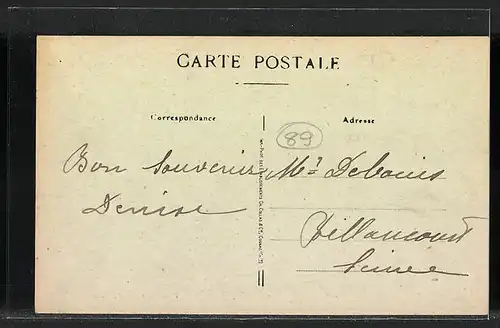 CARTE POSTALE
Correspondance
Adresse
89
Bon Souvenir
Denise
Mr Debouis
Billancourt
Seine